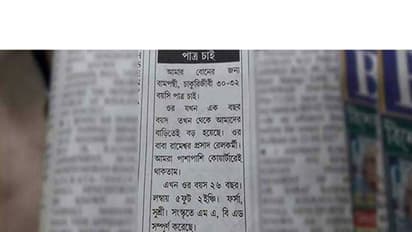 পাত্র চাই
আমার বোনের জন্য
বামপন্থী, চাকুরিজীবী ৩০-৩২
বয়সি পাত্র চাই।
ওর যখন এক বছর
বয়স তখন থেকে আমাদের
বাড়িতেই বড় হয়েছে। ওর
বাবা রামেশ্বর প্রসাদ রেলকর্মী।
আমরা পাশাপাশি কোয়ার্টারেই
থাকতাম।
এখন ওর বয়স ২৬ বছর।
লম্বায় ৫ফুট ২ইঞ্চি। ফর্সা,
সুশ্রী। সংস্কৃতে এম এ, বি এড
সম্পূর্ণ করেছে।